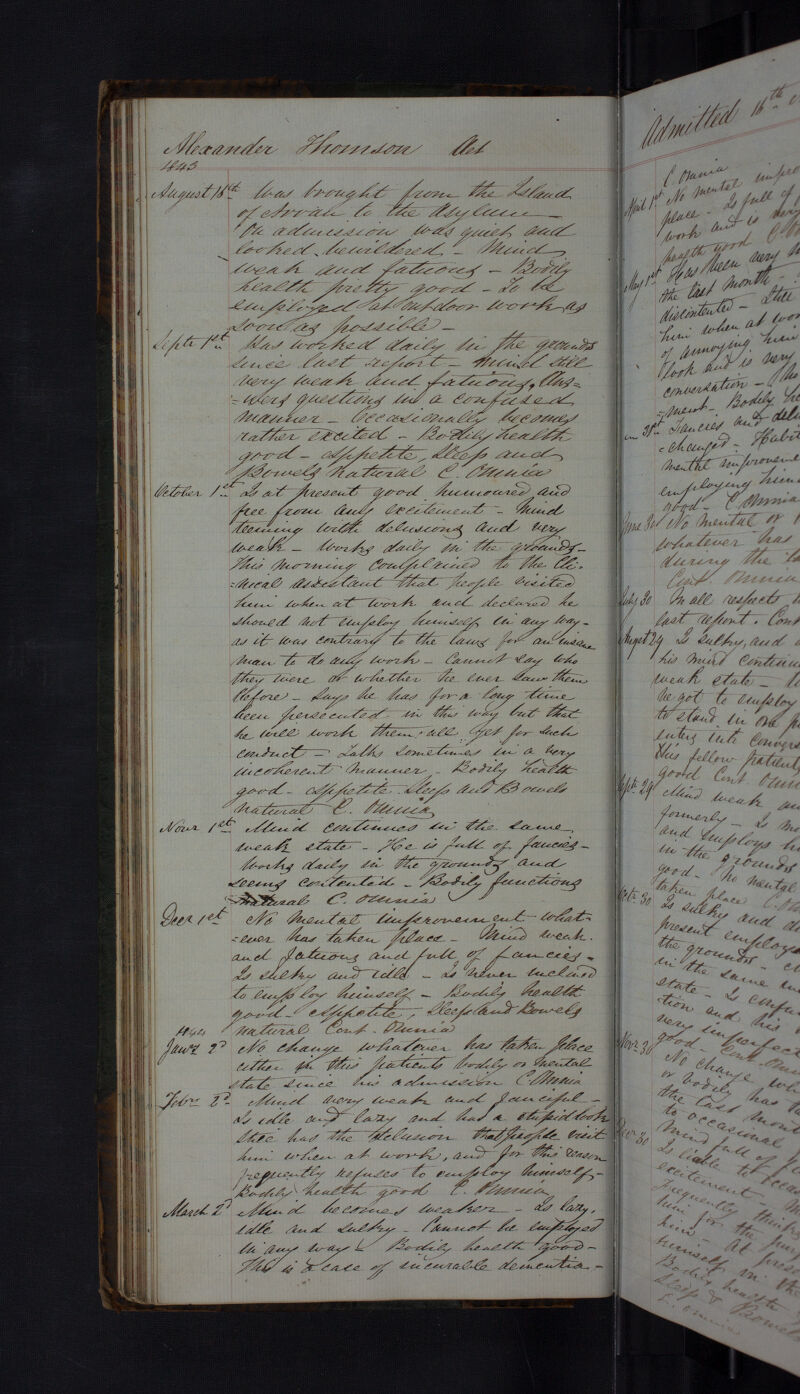 Alexander Thomson Aet
1843
August 16th Was brought from the Island
of Arran to the Asylum –
On admission was quiet and
looked bewildered – Mind
weak and fatuous – Bodily
health pretty good – To be
employed at outdoor work as
soon as possible –
Septr 1st Has worked daily in the grounds
since last report – Mind still
very weak and fatuous, Ans=
=wers questions in a confused
manner – Occasionally becomes
rather excited – Bodily health
good – Appetite, Sleep and
Bowels natural C. Omnia
October 1st Is at present good humoured and
free from any excitement – Mind
teeming with delusions and very
weak – Works daily in the grounds –
This morning complained to the Cli-
=nical assistant that people visited
him when at work and declared he
should not employ himself in any way –
as it was contrary to the laws for an insane
man to do any work – Cannot say who
they were or whether he ever saw them
before – Says he has for a long time
been persecuted in this way but that
he will work them all yet for such
conduct – Talks sometimes in a very
incoherent manner – Bodily health
good – Appetite Sleep and Bowels
natural C. Omnia
Novr 1st Mind continues in the same
weak state – He is full of fancies –
Works daily in the grounds and
seems contented – Bodily functions
natural C. Omnia
Decr 1st No mental improvement what=
=ever has taken place – Mind weak
and fatuous and full of fancies –
Is sulky and idle – Is never inclined
to employ himself – Bodily health
good – Appetite, Sleep and Bowels
natural Cont. Omnia
1844
Jany 2d No change whatever has taken place
either in this patients bodily or mental
state since his admission C. Omnia
Febr 2d Mind very weak and fanciful –
Is idle and lazy and has a stupid look
Still has the delusion that people visit
him when at work, and for this reason
frequently refuses to employ himself –
Bodily health good C. Omnia
March 2d Mind becomes weaker – Is lazy,
idle and sulky – Cannot be employed
in any way – Bodily health good –
This is a case of incurable dementia –
Admitted 16th
C. Omnia
April 1st No mental
place – Is full of
work and is
health good
May 1st Has been very
the last month –
discontented – Still
him when at
of annoying him
look and is very
conversation –
=ment – Bodily
28th Fancies and
=changed –
mental
employing him
good – C. Omnia
June 30 No mental or
whatever has
during the
Cont Omnia
July 30 In all respects
last report. Cont
August 29 Is sulky, and
his mind
weak state –
be got to employ
to stand in one
enters into
his fellow patients
good Cont
Septr 29 Mind weak
formerly – Is
and employs
in the grounds
good – No mental
taken place
Octr 30 Is sulky and
present
the grounds –
in the same
state – Is
=tion and his
very imperfect
good – Cont.
Novr 30 No change
or bodily has
the last month
to occasional
Decr 30 Mind full of
Is liable to
excitement –
Frequently thinks
him for the
him – At
himself in the
Bodily health
Sleep & Bowels
C. Omnia